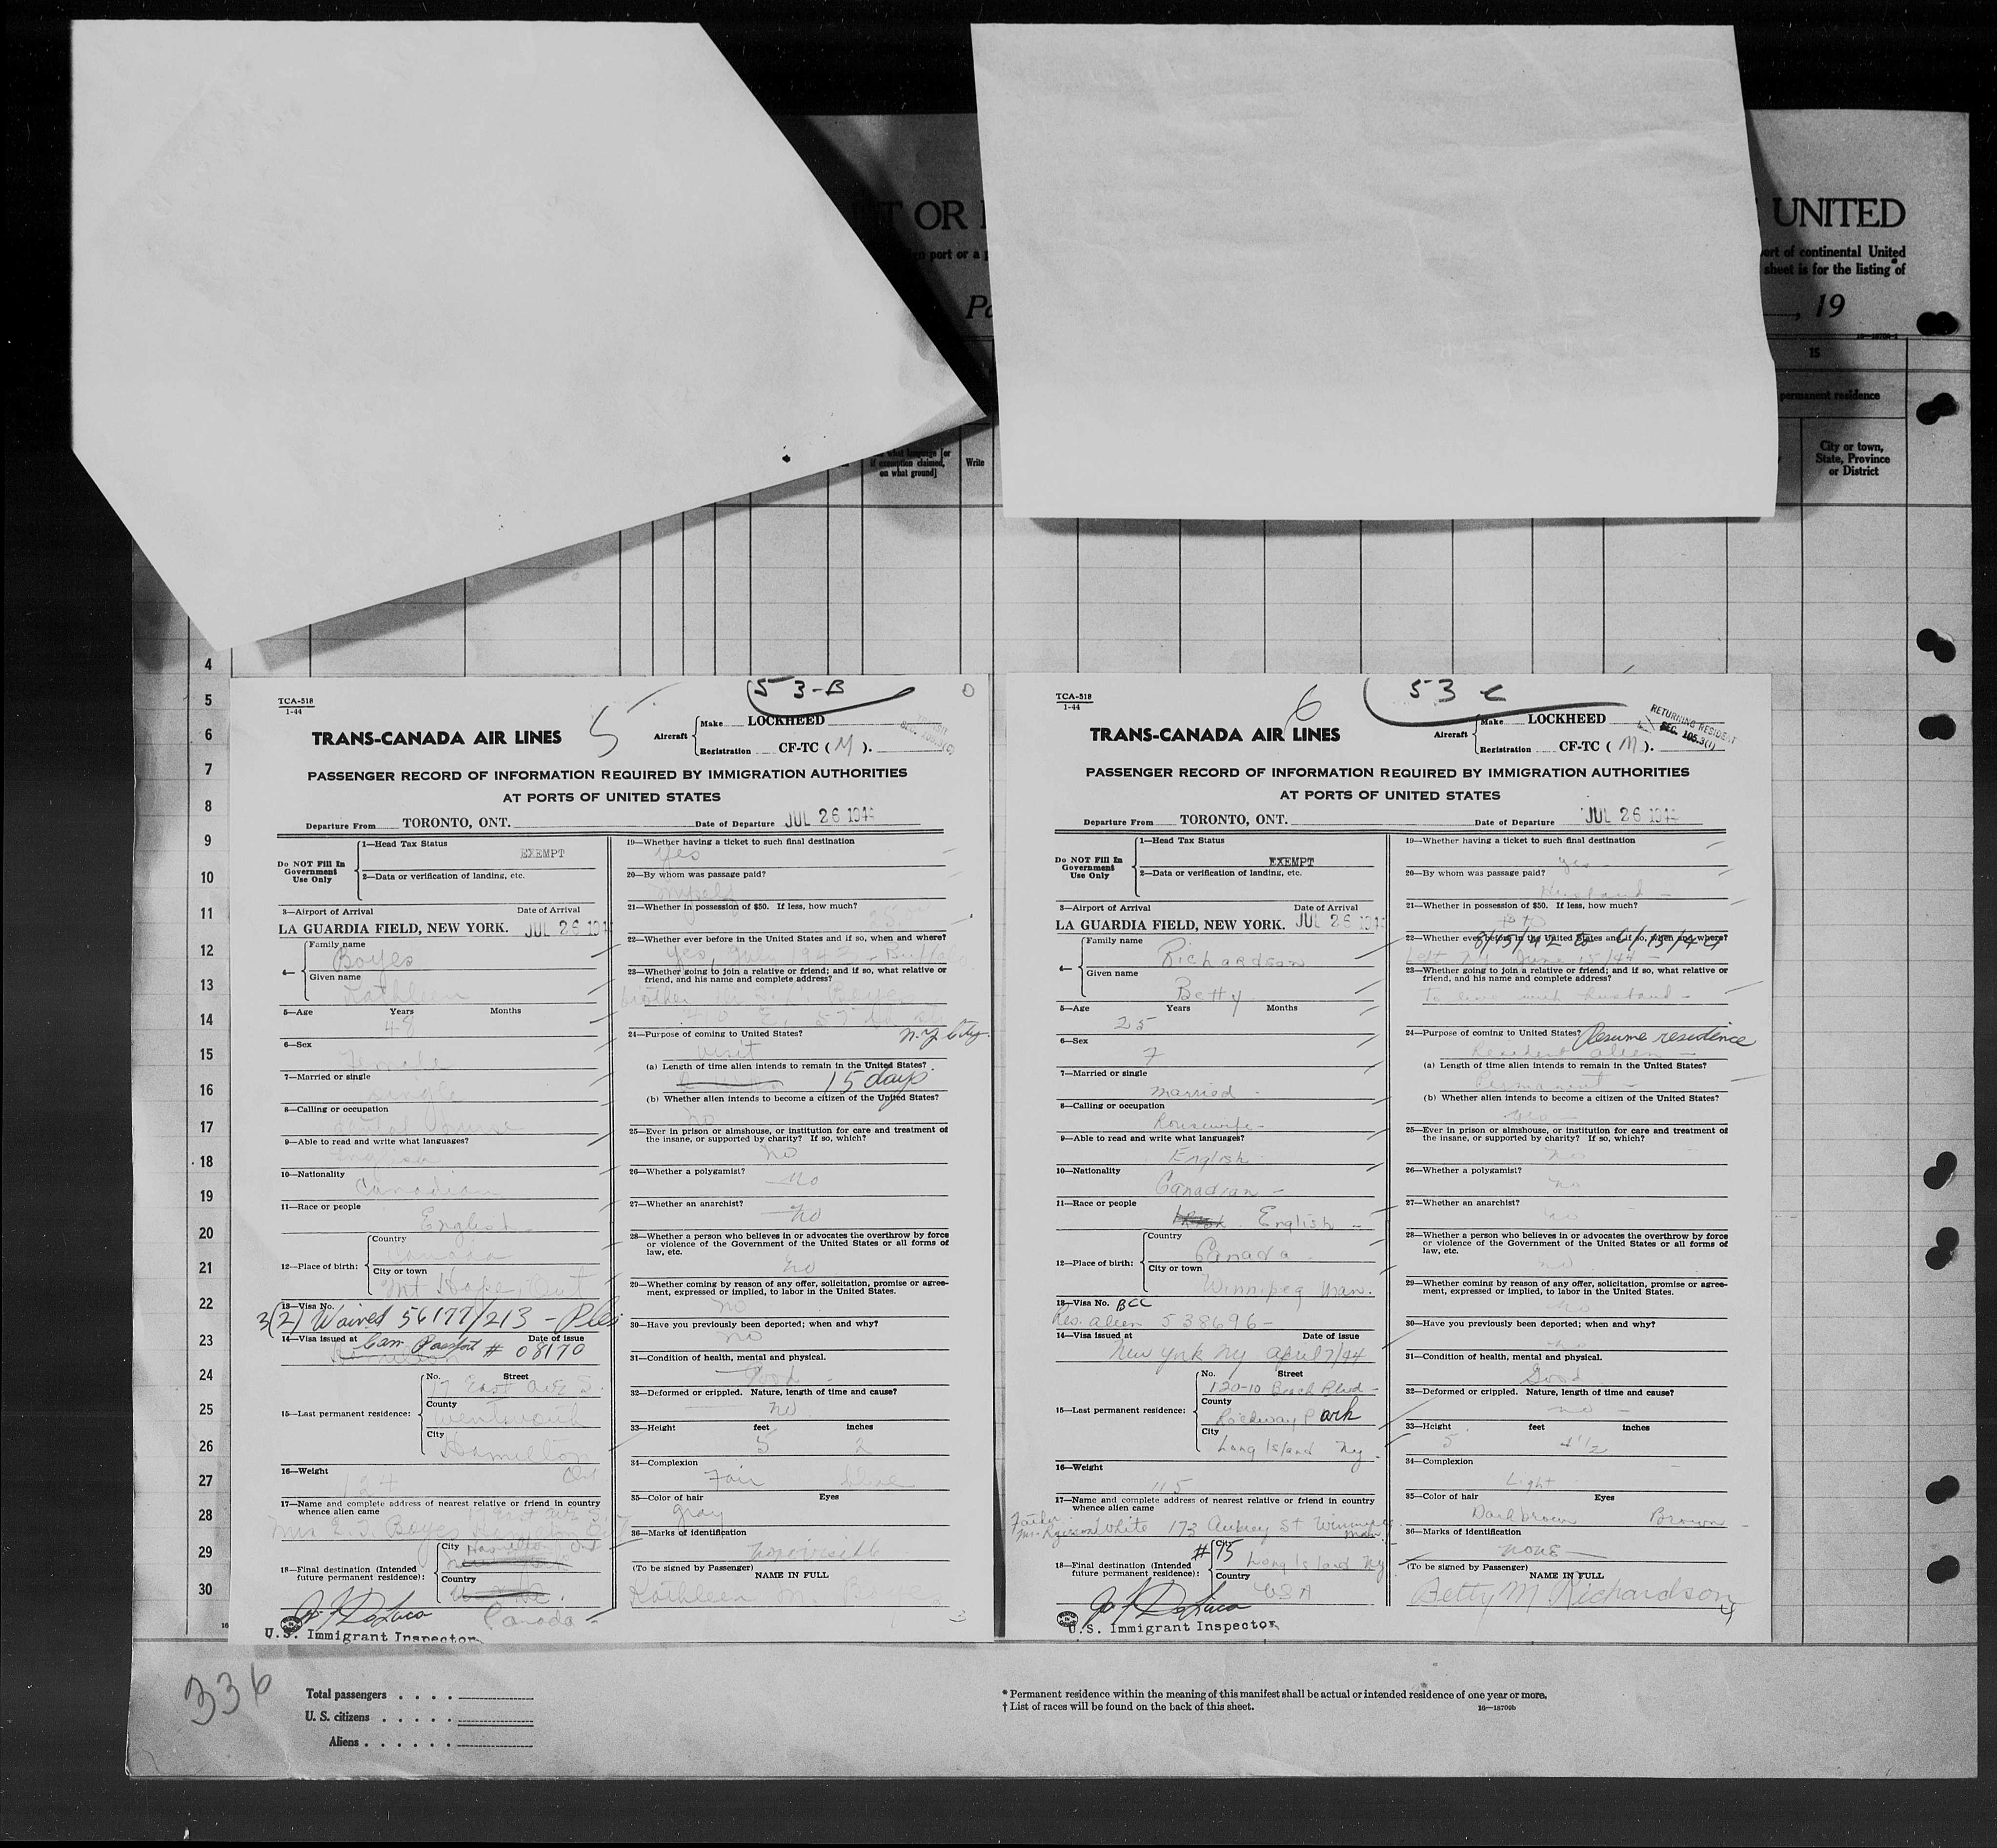 T OR
UNITED
port or a
port of continental United
sheet is for the listing of
, 19
15
permanent residence
what language [or
if exemption claimed,
on what ground]
Write
City or town,
State, Province
or District
4
5
6
7
8
9
10
11
12
13
14
15
16
17
18
19
20
21
22
23
24
25
26
27
28
29
30
TCA-518
1-44
5
53-B
TRANS-CANADA AIR LINES
Aircraft
Make LOCKHEED
Registration CF-TC ( M ).
PASSENGER RECORD OF INFORMATION REQUIRED BY IMMIGRATION AUTHORITIES
AT PORTS OF UNITED STATES
Departure From TORONTO, ONT. Date of Departure JUL 26 1944
Do NOT Fill In
Government
Use Only
1—Head Tax Status
EXEMPT
2—Data or verification of landing, etc.
3—Airport of Arrival Date of Arrival
LA GUARDIA FIELD, NEW YORK. JUL 26 194
4— Family name
Boyes
Given name
Kathleen
5—Age Years Months
48
6—Sex
Female
7—Married or single
single
8—Calling or occupation
dental nurse
9—Able to read and write what languages?
English
10—Nationality
Canadian
11—Race or people
English
12—Place of birth:
Country
Canada
City or town
Mt Hope, Ont
13—Visa No.
3(2) Waived 56177/213
14—Visa issued at Date of issue
Can Passport # 08170
15—Last permanent residence:
No. Street
17 East Ave S.
County
Wentworth
City
Hamilton
Ont
16—Weight
124
17—Name and complete address of nearest relative or friend in country
whence alien came
Mrs E. J. Boyes Hamilton Ont
18—Final destination (Intended
future permanent residence):
City Hamilton Ont
Country
Canada
U.S. Immigrant Inspector
19—Whether having a ticket to such final destination
Yes
20—By whom was passage paid?
Myself
21—Whether in possession of $50. If less, how much?
22—Whether ever before in the United States and if so, when and where?
Yes, July 1943 - Buffalo
23—Whether going to join a relative or friend; and if so, what relative or
friend, and his name and complete address?
brother Boyes
410 E. 57th St
N.Y. City
24—Purpose of coming to United States?
Visit
(a) Length of time alien intends to remain in the United States?
15 days
(b) Whether alien intends to become a citizen of the United States?
No
25—Ever in prison or almshouse, or institution for care and treatment of
the insane, or supported by charity? If so, which?
No
26—Whether a polygamist?
No
27—Whether an anarchist?
No
28—Whether a person who believes in or advocates the overthrow by force
or violence of the Government of the United States or all forms of
law, etc.
No
29—Whether coming by reason of any offer, solicitation, promise or agree-
ment, expressed or implied, to labor in the United States.
No
30—Have you previously been deported; when and why?
No
31—Condition of health, mental and physical.
Good
32—Deformed or crippled. Nature, length of time and cause?
No
33—Height feet inches
5 2
34—Complexion
Fair blue
35—Color of hair Eyes
gray
36—Marks of identification
(To be signed by Passenger)
NAME IN FULL
Kathleen M. Boyes
TCA-518
1-44
6
53 C
TRANS-CANADA AIR LINES
Aircraft
Make LOCKHEED
Registration CF-TC ( M ).
RETURNING RESIDENT
SEC. 105.3(1)
PASSENGER RECORD OF INFORMATION REQUIRED BY IMMIGRATION AUTHORITIES
AT PORTS OF UNITED STATES
Departure From TORONTO, ONT. Date of Departure JUL 26 1944
Do NOT Fill In
Government
Use Only
1—Head Tax Status
EXEMPT
2—Data or verification of landing, etc.
3—Airport of Arrival Date of Arrival
LA GUARDIA FIELD, NEW YORK. JUL 26 194
4— Family name
Richardson
Given name
Betty
5—Age Years Months
25
6—Sex
F
7—Married or single
Married
8—Calling or occupation
Housewife
9—Able to read and write what languages?
English
10—Nationality
Canadian
11—Race or people
English
12—Place of birth:
Country
Canada
City or town
Winnipeg Man.
13—Visa No. BCC
Res. alien 538696
14—Visa issued at Date of issue
New York NY April 7/44
15—Last permanent residence:
No. Street
120-10 Beach Blvd
County
Rockway Park
City
Long Island NY
16—Weight
115
17—Name and complete address of nearest relative or friend in country
whence alien came
Father
White 173 Aubrey St Winnipeg
Man
18—Final destination (Intended
future permanent residence):
City
#15 Long Island NY
Country
USA
U.S. Immigrant Inspector
19—Whether having a ticket to such final destination
Yes
20—By whom was passage paid?
Husband
21—Whether in possession of $50. If less, how much?
22—Whether ever before in the United States and if so, when and where?
8/15/42 to 6/15/44
Left NY June 15/44
23—Whether going to join a relative or friend; and if so, what relative or
friend, and his name and complete address?
To live with husband
24—Purpose of coming to United States? Resume residence
Resident alien
(a) Length of time alien intends to remain in the United States?
Permanent
(b) Whether alien intends to become a citizen of the United States?
Yes
25—Ever in prison or almshouse, or institution for care and treatment of
the insane, or supported by charity? If so, which?
No
26—Whether a polygamist?
No
27—Whether an anarchist?
No
28—Whether a person who believes in or advocates the overthrow by force
or violence of the Government of the United States or all forms of
law, etc.
No
29—Whether coming by reason of any offer, solicitation, promise or agree-
ment, expressed or implied, to labor in the United States.
No
30—Have you previously been deported; when and why?
No
31—Condition of health, mental and physical.
Good
32—Deformed or crippled. Nature, length of time and cause?
No
33—Height feet inches
5 4 1/2
34—Complexion
Light
35—Color of hair Eyes
Dark brown Brown
36—Marks of identification
None
(To be signed by Passenger)
NAME IN FULL
Betty M Richardson
336
Total passengers . . . .
U. S. citizens . . . . .
Aliens . . . . . .
* Permanent residence within the meaning of this manifest shall be actual or intended residence of one year or more.
† List of races will be found on the back of this sheet.
16—18709b